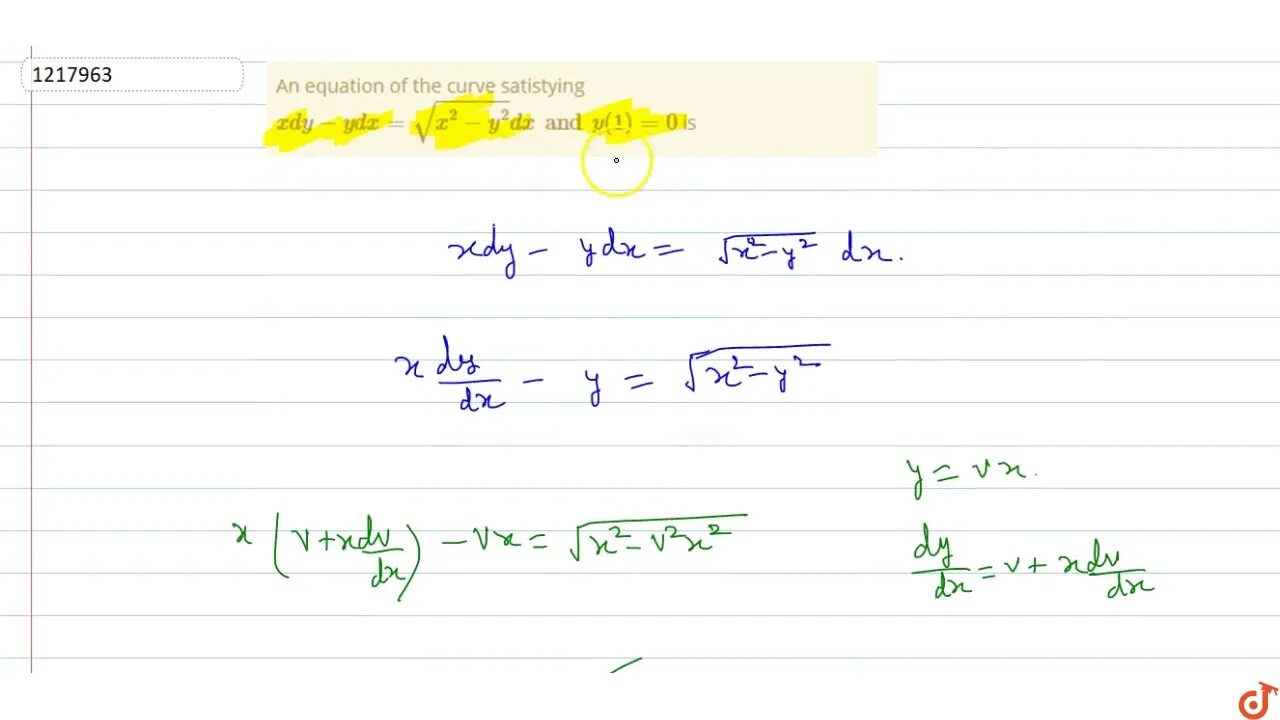 1217963
An equation of the curve satistying
xdy − ydx = √(x² − y²)dx and y(1) = 0 is
xdy − ydx = √(x²−y²) dx.
x dy/dx − y = √(x²−y²)
y = vx.
x (v + x dv/dx) − vx = √(x² − v²x²)
dy/dx = v + x dv/dx